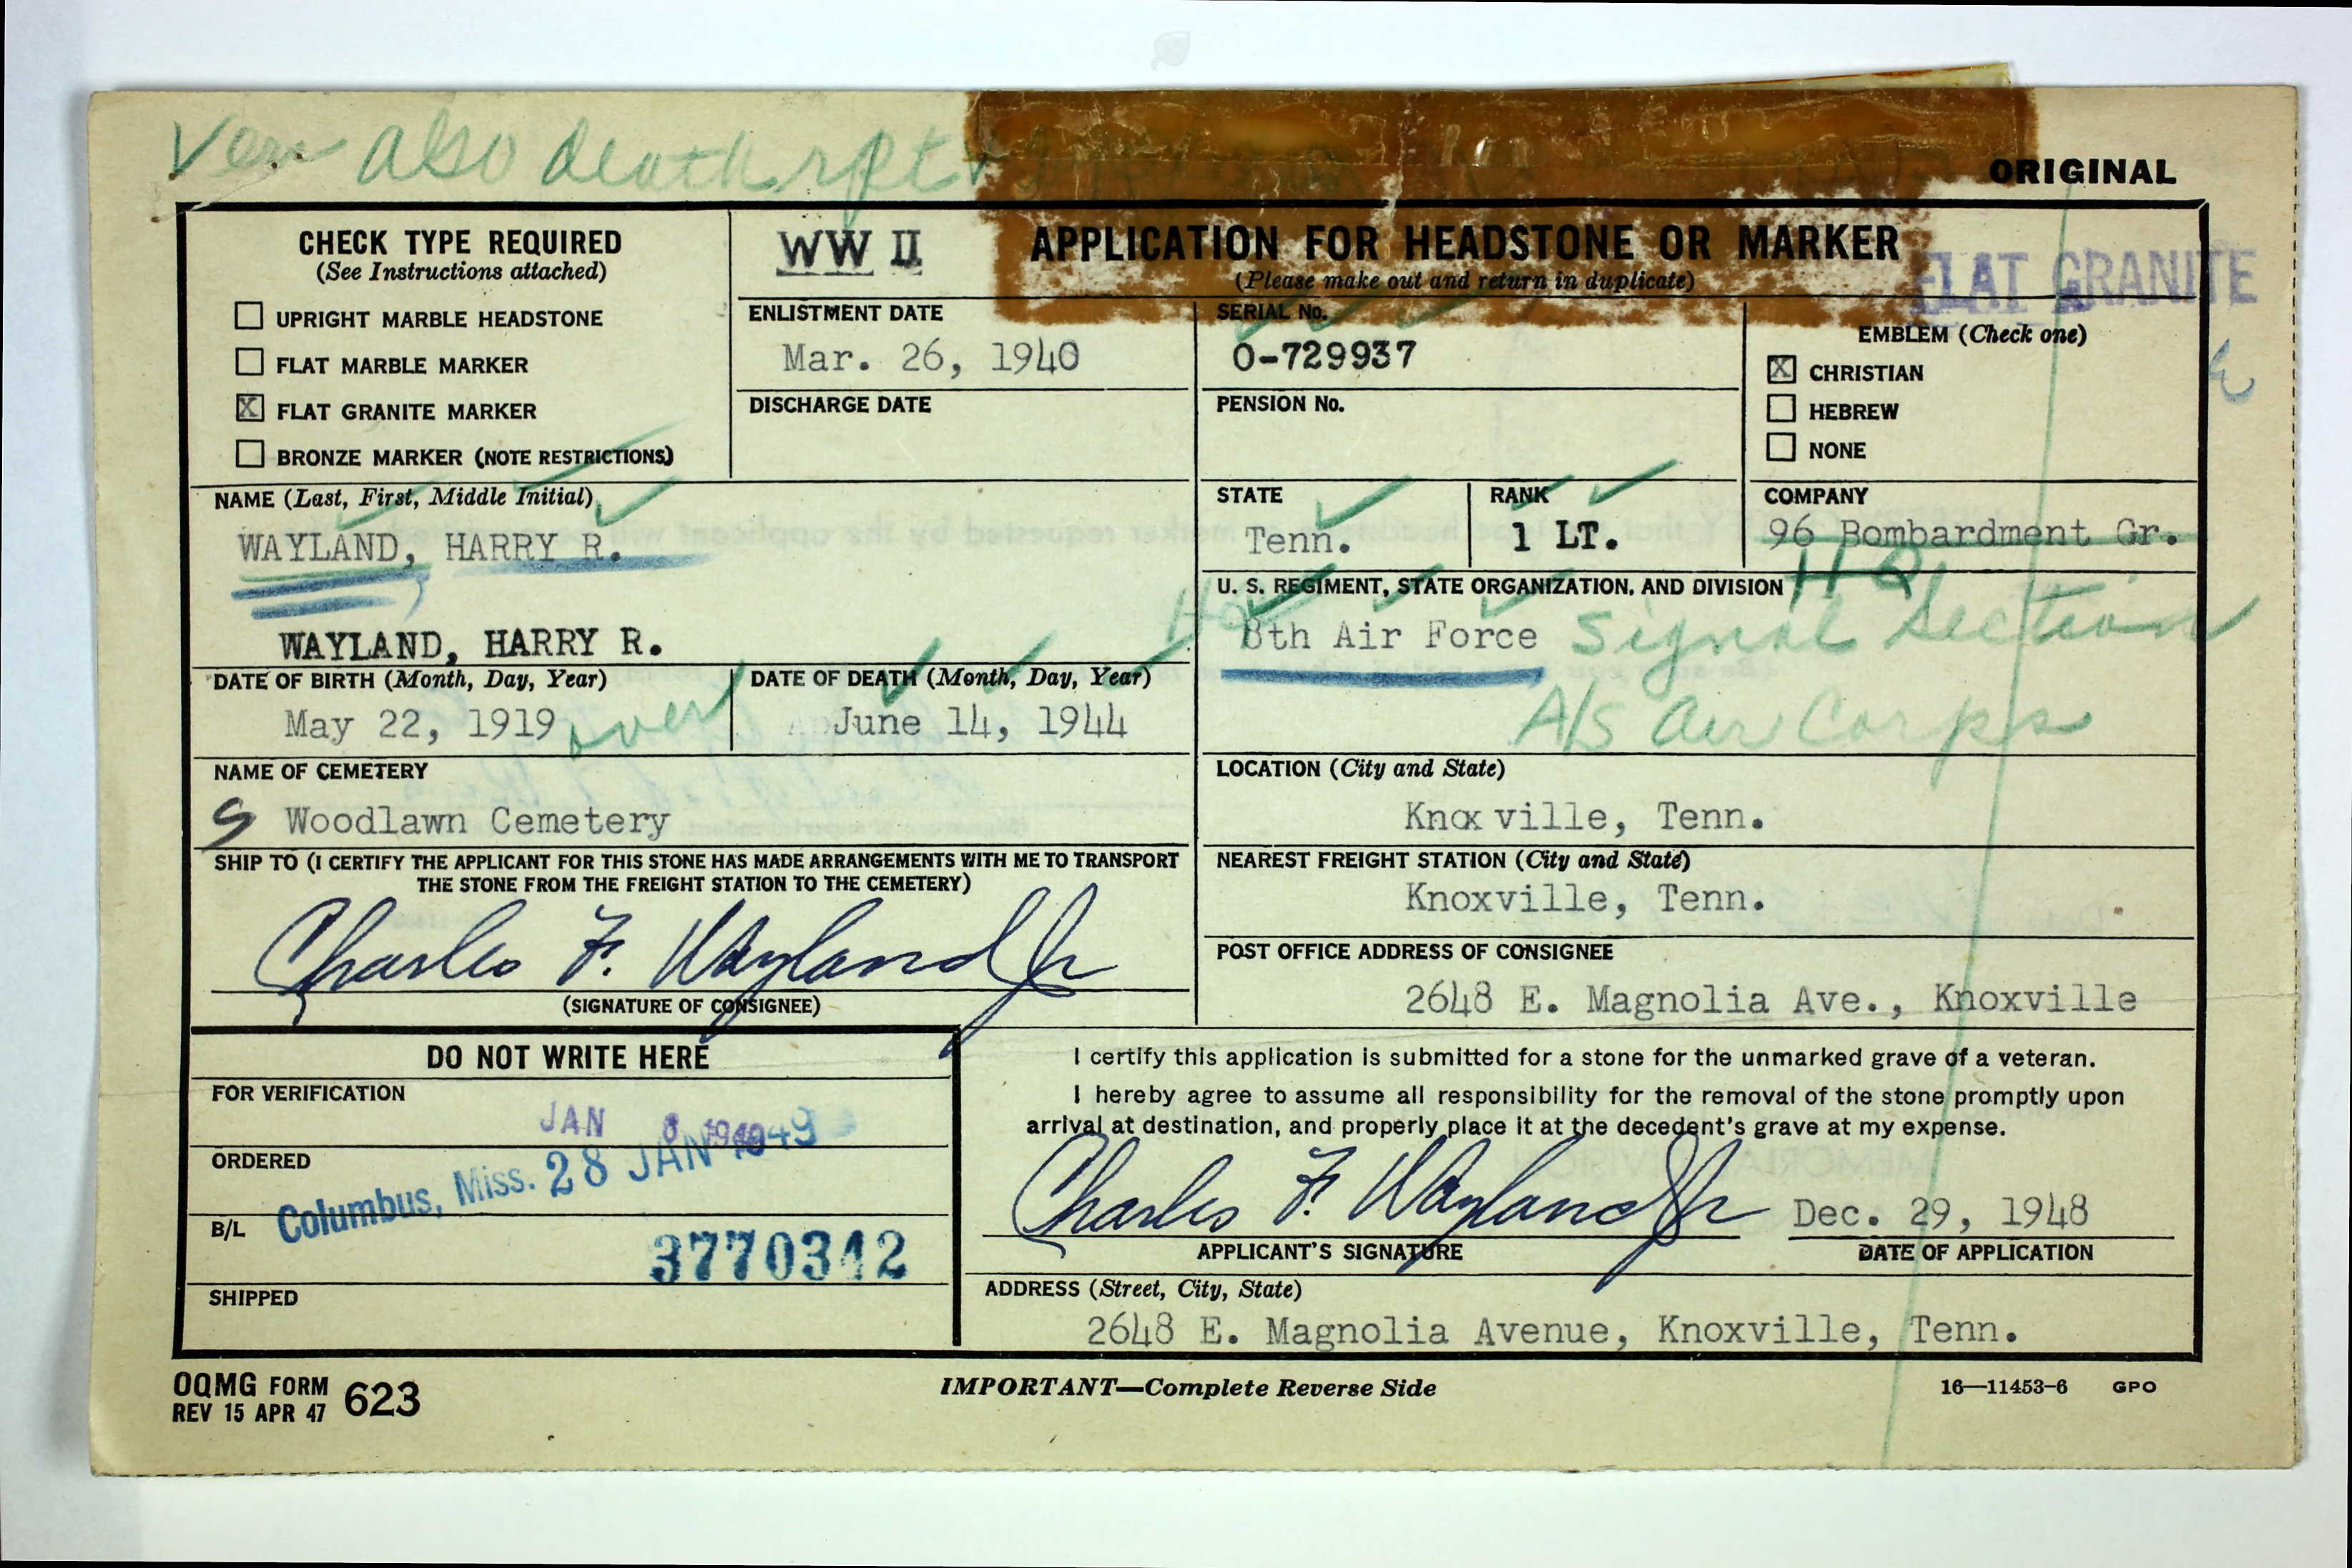 Ver also death rpt
ORIGINAL
CHECK TYPE REQUIRED
(See Instructions attached)
☐ UPRIGHT MARBLE HEADSTONE
☐ FLAT MARBLE MARKER
☒ FLAT GRANITE MARKER
☐ BRONZE MARKER (NOTE RESTRICTIONS)
WW II
APPLICATION FOR HEADSTONE OR MARKER
(Please make out and return in duplicate)
FLAT GRANITE
ENLISTMENT DATE
Mar. 26, 1940
DISCHARGE DATE
SERIAL No.
O-729937
PENSION No.
EMBLEM (Check one)
☒ CHRISTIAN
☐ HEBREW
☐ NONE
NAME (Last, First, Middle Initial)
WAYLAND, HARRY R.
WAYLAND, HARRY R.
STATE
Tenn.
RANK
1 LT.
COMPANY
96 Bombardment Gr.
U. S. REGIMENT, STATE ORGANIZATION, AND DIVISION
HQ
Hq 8th Air Force Signal Section
A/S Air Corps
DATE OF BIRTH (Month, Day, Year)
May 22, 1919 over
DATE OF DEATH (Month, Day, Year)
June 14, 1944
NAME OF CEMETERY
S Woodlawn Cemetery
LOCATION (City and State)
Knoxville, Tenn.
SHIP TO (I CERTIFY THE APPLICANT FOR THIS STONE HAS MADE ARRANGEMENTS WITH ME TO TRANSPORT
THE STONE FROM THE FREIGHT STATION TO THE CEMETERY)
Charles F. Wayland Jr
(SIGNATURE OF CONSIGNEE)
NEAREST FREIGHT STATION (City and State)
Knoxville, Tenn.
POST OFFICE ADDRESS OF CONSIGNEE
2648 E. Magnolia Ave., Knoxville
DO NOT WRITE HERE
FOR VERIFICATION
JAN 8 1949
ORDERED
Columbus, Miss. 28 JAN 1949
B/L
3770342
SHIPPED
I certify this application is submitted for a stone for the unmarked grave of a veteran.
I hereby agree to assume all responsibility for the removal of the stone promptly upon
arrival at destination, and properly place it at the decedent's grave at my expense.
Charles F. Wayland Jr
Dec. 29, 1948
APPLICANT'S SIGNATURE
DATE OF APPLICATION
ADDRESS (Street, City, State)
2648 E. Magnolia Avenue, Knoxville, Tenn.
OQMG FORM 623
REV 15 APR 47
IMPORTANT—Complete Reverse Side
16—11453-6 GPO